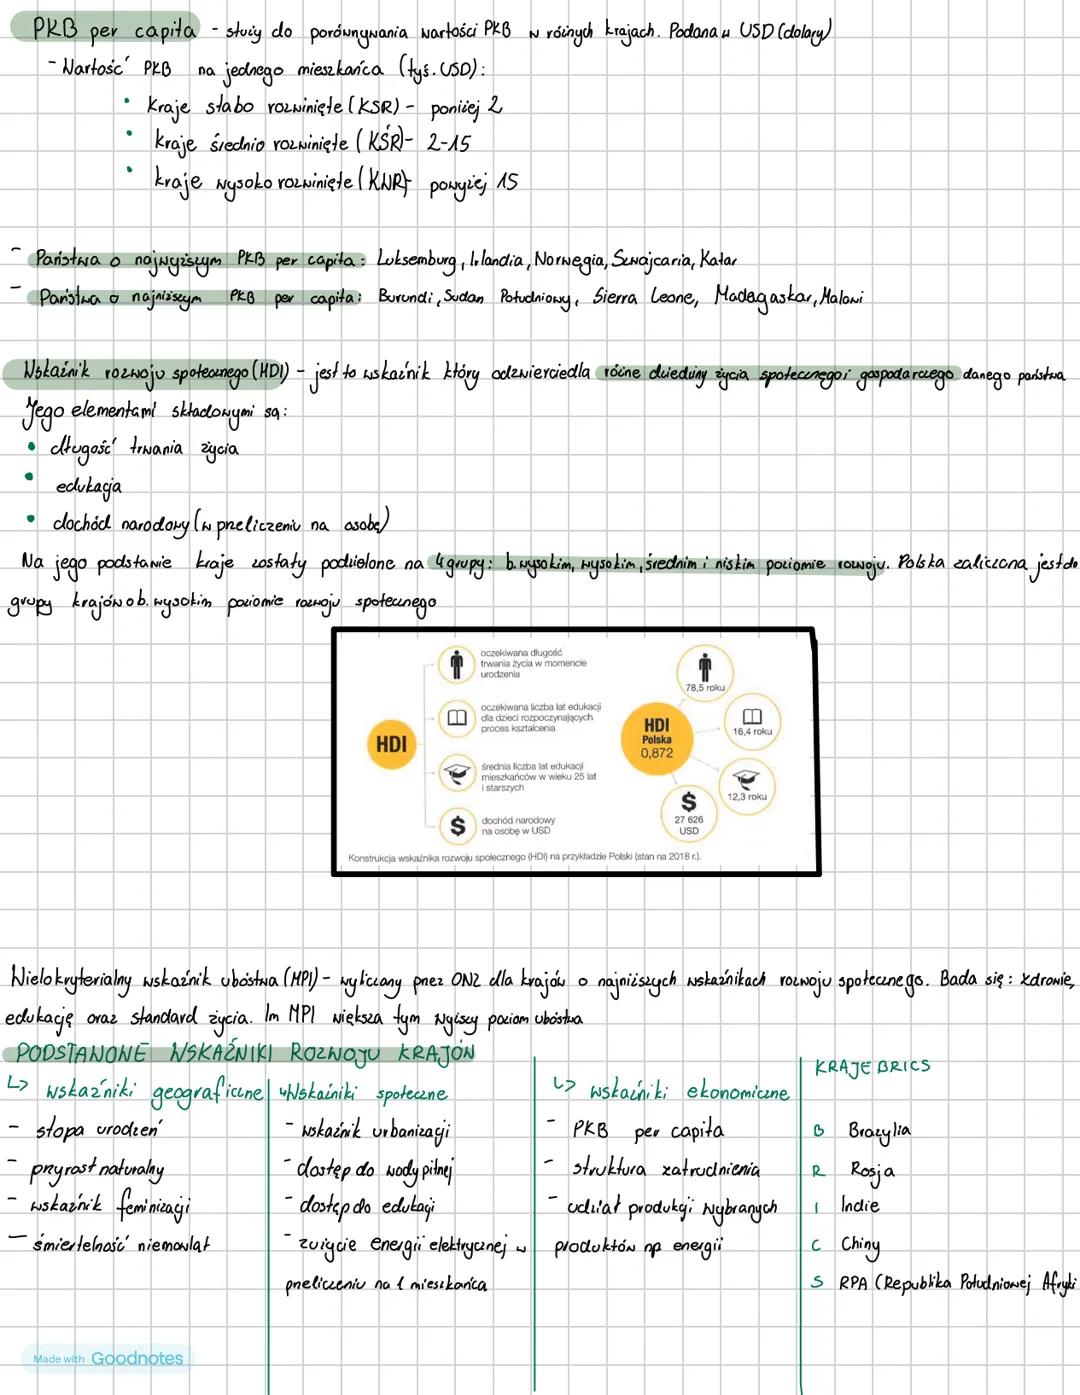 PKB per capita - służy do porównywania wartości PKB w różnych krajach. Podana w USD (dolary)
- Wartość PKB na jednego mieszkańca (tyś. USD):
• kraje słabo rozwinięte (KSR) - poniżej 2
• kraje średnio rozwinięte (KŚR) - 2-15
• kraje wysoko rozwinięte (KWR) - powyżej 15
- Państwa o najwyższym PKB per capita: Luksemburg, Irlandia, Norwegia, Szwajcaria, Katar
- Państwa o najniższym PKB per capita: Burundi, Sudan Południowy, Sierra Leone, Madagaskar, Malawi
Wskaźnik rozwoju społecznego (HDI) - jest to wskaźnik który odzwierciedla różne dziedziny życia społecznego i gospodarczego danego państwa
Jego elementami składowymi są:
• długość trwania życia
• edukacja
• dochód narodowy (w przeliczeniu na osobę)
Na jego podstawie kraje zostały podzielone na 4 grupy: b. wysokim, wysokim, średnim i niskim poziomie rozwoju. Polska zaliczona jest do
grupy krajów o b. wysokim poziomie rozwoju społecznego
HDI
oczekiwana długość
trwania życia w momencie
urodzenia
oczekiwana liczba lat edukacji
dla dzieci rozpoczynających
proces kształcenia
średnia liczba lat edukacji
mieszkańców w wieku 25 lat
i starszych
$ dochód narodowy
na osobę w USD
HDI
Polska
0,872
78,5 roku
16,4 roku
12,3 roku
$
27 626
USD
Konstrukcja wskaźnika rozwoju społecznego (HDI) na przykładzie Polski (stan na 2018 r.).
Wielokryterialny wskaźnik ubóstwa (MPI) - wyliczany przez ONZ dla krajów o najniższych wskaźnikach rozwoju społecznego. Bada się: zdrowie,
edukację oraz standard życia. Im MPI większa tym wyższy poziom ubóstwa
PODSTAWOWE WSKAŹNIKI ROZWOJU KRAJÓW
↳ wskaźniki geograficzne
- stopa urodzeń
- przyrost naturalny
- wskaźnik feminizacji
- śmiertelność niemowląt
↳ Wskaźniki społeczne
- wskaźnik urbanizacji
- dostęp do wody pitnej
- dostęp do edukacji
- zużycie energii elektrycznej w
przeliczeniu na 1 mieszkańca
↳ wskaźniki ekonomiczne
- PKB per capita
- struktura zatrudnienia
- udział produkcji wybranych
produktów np energii
KRAJE BRICS
B Brazylia
R Rosja
I Indie
C Chiny
S RPA (Republika Południowej Afryki
Made with Goodnotes